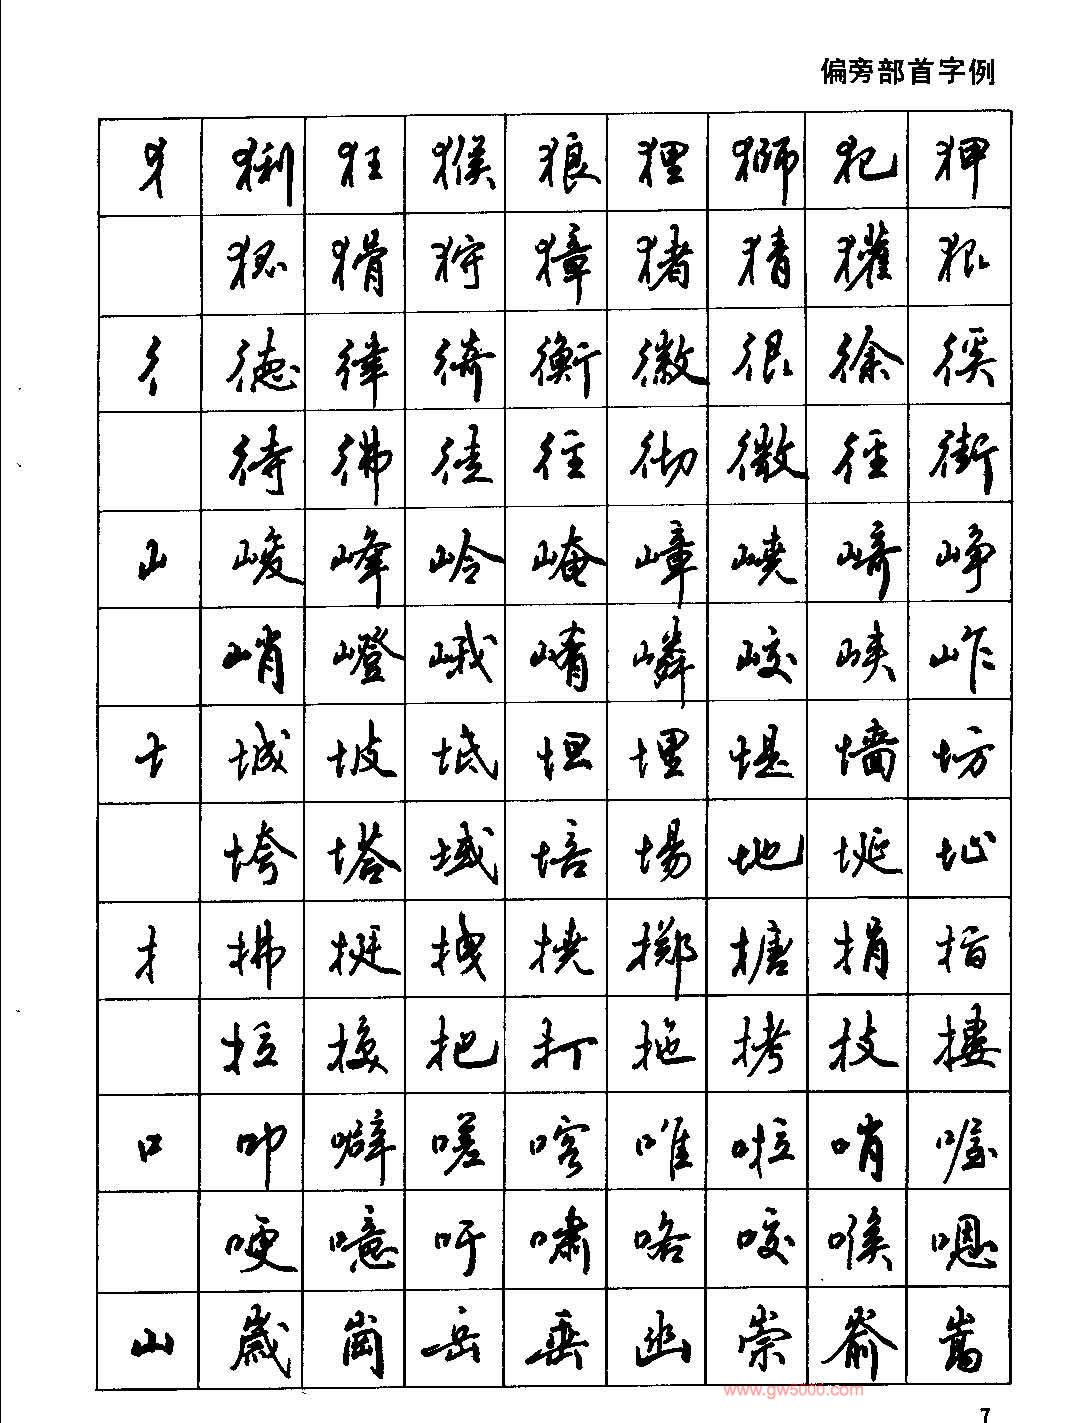 偏旁部首字例
犭 猁 狂 猴 狼 狸 獅 犯 狎
猾 狩 獐 猪 猜 獾 狠
彳 徳 徫 徛 衡 徽 很 徐 徯
待 彿 徒 往 彻 微 径 街
山 峻 峰 岭 崦 嶂 峣 崎 峥
峭 嶝 峨 崤 嶙 峧 峡 岞
土 城 坡 坻 坦 埋 堤 墙 坊
垮 塔 域 培 場 地 埏 址
扌 拂 挺 拽 挠 掷 搪 捐 指
拉 换 把 打 拖 拷 技 搂
口 叩 噼 嗟 喀 唯 啦 哨 喔
哽 噫 吁 嘯 咯 咬 喉 嗯
山 崴 岗 岳 幽 崇 嵛 嵩
www.gw5000.com
7